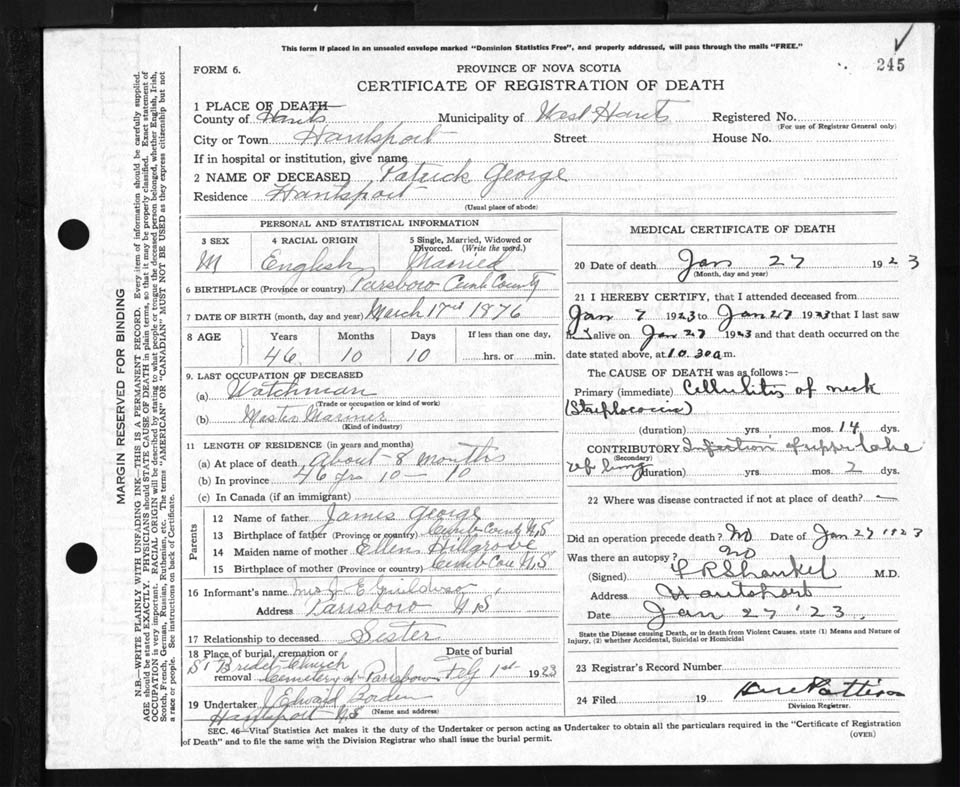 This form if placed in an unsealed envelope marked "Dominion Statistics Free", and properly addressed, will pass through the mails "FREE."
245
FORM 6.
PROVINCE OF NOVA SCOTIA
CERTIFICATE OF REGISTRATION OF DEATH
1 PLACE OF DEATH—
County of Hants Municipality of West Hants Registered No.
(For use of Registrar General only)
City or Town Hantsport Street House No.
If in hospital or institution, give name
2 NAME OF DECEASED Patrick George
Residence Hantsport
(Usual place of abode)
PERSONAL AND STATISTICAL INFORMATION
3 SEX 4 RACIAL ORIGIN 5 Single, Married, Widowed or Divorced. (Write the word.)
M English Married
6 BIRTHPLACE (Province or country) Parsboro Cumb County
7 DATE OF BIRTH (month, day and year) March 17 1876
8 AGE Years Months Days If less than one day,
46 10 10 hrs. or min.
9. LAST OCCUPATION OF DECEASED
(a) Watchman
(Trade or occupation or kind of work)
(b) Master Mariner
(Kind of industry)
11 LENGTH OF RESIDENCE (in years and months)
(a) At place of death About 8 months
(b) In province 46 yrs 10 — 10
(c) In Canada (if an immigrant)
Parents
12 Name of father James George
13 Birthplace of father (Province or country) Cumb County N,S
14 Maiden name of mother Ellen Hillgrove
15 Birthplace of mother (Province or country) Cumb Con N,S
16 Informant's name Mrs J E
Address Parrsboro N S
17 Relationship to deceased Sister
18 Place of burial, cremation or removal St Bridet Church Cemetery at Parrsboro
Date of burial Feb 1st 1923
19 Undertaker J Edward Borden
Hantsport N S (Name and address)
MEDICAL CERTIFICATE OF DEATH
20 Date of death Jan 27 1923
(Month, day and year)
21 I HEREBY CERTIFY, that I attended deceased from
Jan 7 1923 to Jan 27 1923 that I last saw
h alive on Jan 27 1923 and that death occurred on
date stated above, at 10.30 a m.
The CAUSE OF DEATH was as follows:—
Primary (immediate) Cellulitis of neck
(duration) yrs. mos. 14 dys.
CONTRIBUTORY Infection of upper lobe
(Secondary)
of lung (duration) yrs. mos. 2 dys.
22 Where was disease contracted if not at place of death? —
Did an operation precede death? No Date of Jan 27 1923
Was there an autopsy? no
(Signed) F R Shankel M.D.
Address Hantsport
Date Jan 27 '23.
State the Disease causing Death, or in death from Violent Causes, state (1) Means and Nature of Injury, (2) whether Accidental, Suicidal or Homicidal
23 Registrar's Record Number
24 Filed 19
Division Registrar.
SEC. 46—Vital Statistics Act makes it the duty of the Undertaker or person acting as Undertaker to obtain all the particulars required in the "Certificate of Registration
of Death" and to file the same with the Division Registrar who shall issue the burial permit.
(OVER)
MARGIN RESERVED FOR BINDING
N.B.—WRITE PLAINLY WITH UNFADING INK—THIS IS A PERMANENT RECORD. Every item of information should be carefully supplied.
AGE should be stated EXACTLY. PHYSICIANS should STATE CAUSE OF DEATH in plain terms, so that it may be properly classified. Exact statement of
OCCUPATION is very important. RACIAL ORIGIN will be described by stating to what people or tongue the deceased person belonged, whether English, Irish,
Scotch, French, German, Russian, Ruthenian, etc. The terms "AMERICAN" OR "CANADIAN" MUST NOT BE USED as they express citizenship but not
a race or people. See instructions on back of Certificate.